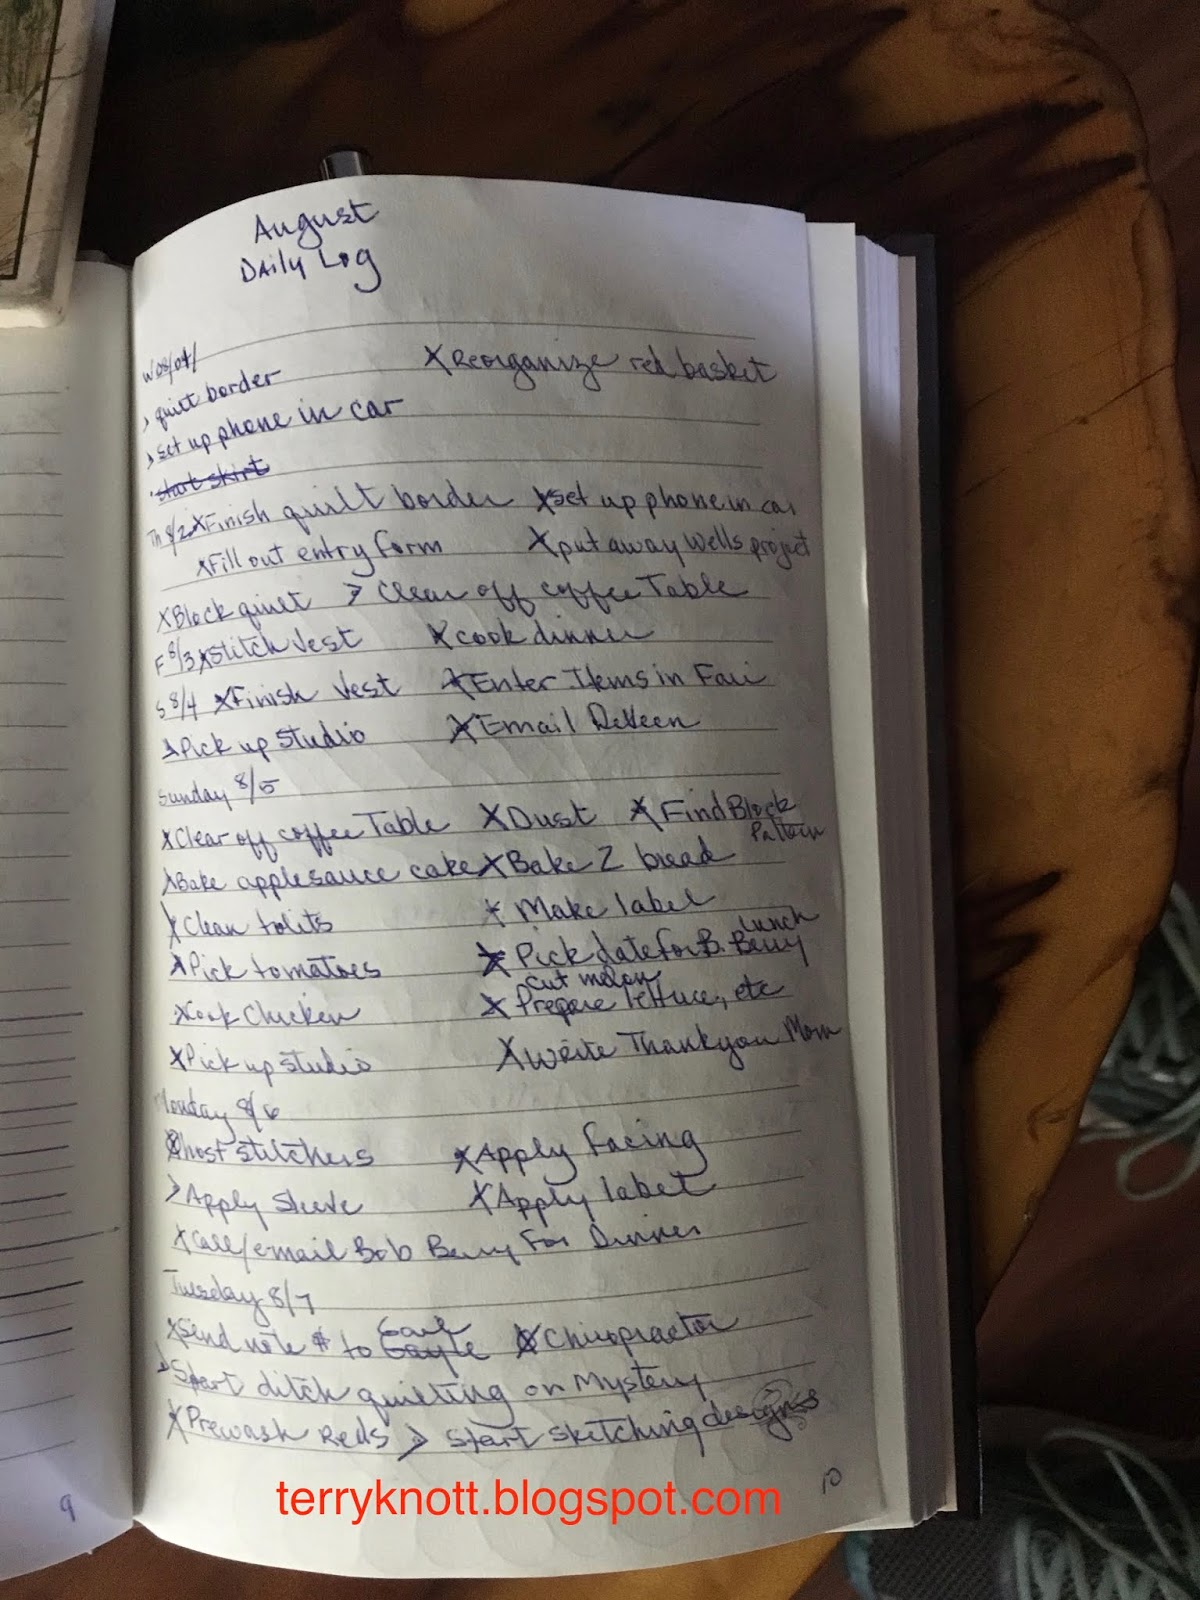 August
Daily Log
W 08/01/ X Reorganize red basket
> quilt border
> set up phone in car
· start skirt
Th 8/2 X Finish quilt border X set up phone in car
X Fill out entry form X put away Wells project
X Block quilt > Clear off coffee Table
F 8/3 X Stitch Vest X cook dinner
S 8/4 X Finish Vest X Enter Items in Fair
X Pick up Studio X Email DeVeen
Sunday 8/5
X Clear off coffee Table X Dust X Find Block Pattern
X Bake applesauce cake X Bake Z bread
X Clean toilits X Make label
X Pick tomatoes X Pick date for B. Berry lunch
X Cook Chicken X Prepare lettuce, etc cut melon
X Pick up studio X Write Thank you Mom
Monday 8/6
X Ghost stitchers X Apply facing
> Apply Sleeve X Apply label
X Call/email Bob Berry For Dinner
Tuesday 8/7
X Send note $ to Gayle Gail X Chiropractor
> Start ditch quilting on Mystery
X Prewash Reds > Start sketching designs
9
10
terryknott.blogspot.com